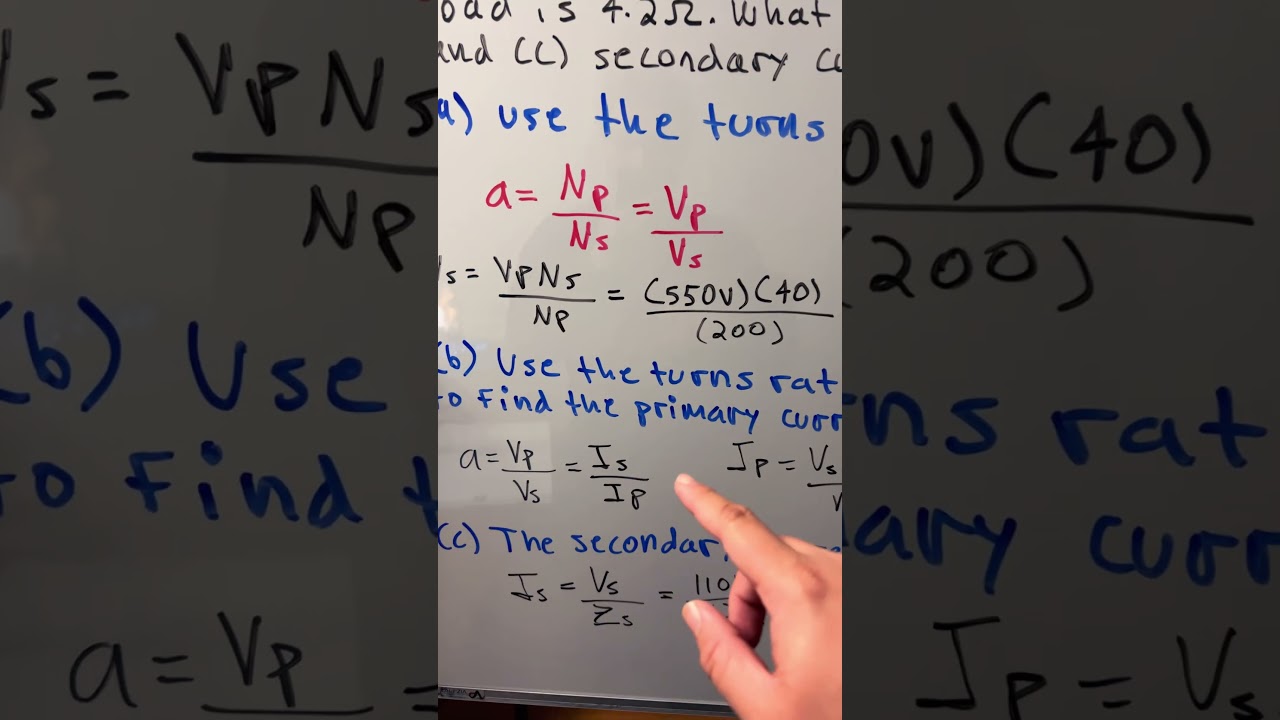 oad is 4.2Ω. What
and (C) secondary
a) use the turns
a = Np/Ns = Vp/Vs
Vs = VpNs/Np = (550V)(40)/(200)
(b) Use the turns rat
to find the primary curr
a = Vp/Vs = Is/Ip Ip = Vs
(c) The secondar
Is = Vs/Zs = 110